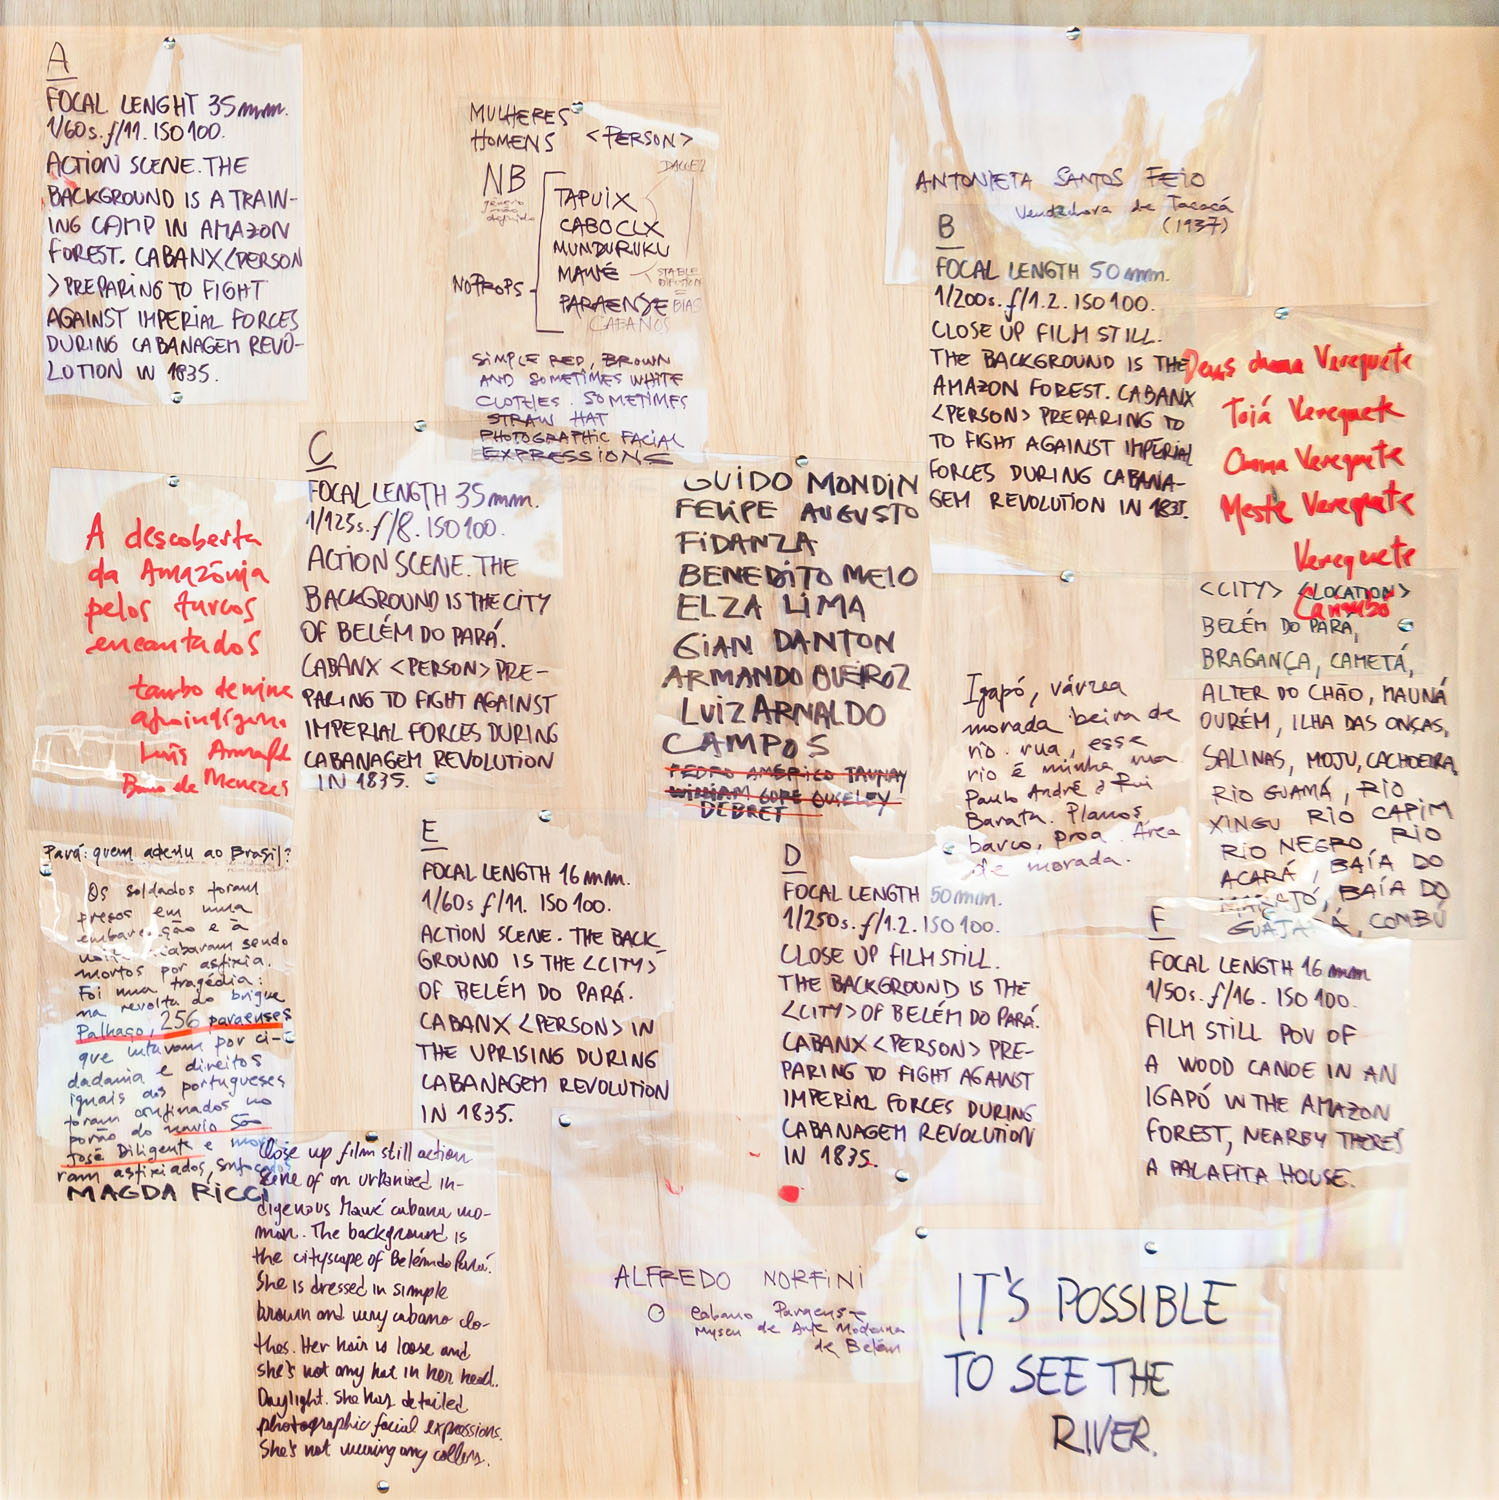 A
FOCAL LENGHT 35mm.
1/60s. f/11. ISO 100.
ACTION SCENE. THE
BACKGROUND IS A TRAIN-
ING CAMP IN AMAZON
FOREST. CABANX <PERSON
> PREPARING TO FIGHT
AGAINST IMPERIAL FORCES
DURING CABANAGEM REVO-
LUTION IN 1835.
MULHERES
HOMENS <PERSON>
NB
gênero
não
definido
DALLE2
TAPUIX
CABOCLX
MUNDURUKU
MAWÉ
NO PROPS
PARAENSE
CABANOS
STABLE
DIFUSION
=
BIAS
SIMPLE RED, BROWN
AND SOMETIMES WHITE
CLOTHES. SOMETIMES
STRAW HAT
PHOTOGRAPHIC FACIAL
EXPRESSIONS
ANTONIETA SANTOS FEIO
Vendedora de Tacacá
(1937)
B
FOCAL LENGTH 50mm.
1/200s. f/1.2. ISO 100.
CLOSE UP FILM STILL.
THE BACKGROUND IS THE
AMAZON FOREST. CABANX
<PERSON> PREPARING TO
TO FIGHT AGAINST IMPERIAL
FORCES DURING CABANA-
GEM REVOLUTION IN 1835.
Verequete
Toiá Verequete
Chama Verequete
Verequete
Verequete
C
FOCAL LENGTH 35mm.
1/125s. f/8. ISO 100.
ACTION SCENE. THE
BACKGROUND IS THE CITY
OF BELÉM DO PARÁ.
CABANX <PERSON> PRE-
PARING TO FIGHT AGAINST
IMPERIAL FORCES DURING
CABANAGEM REVOLUTION
IN 1835.
A descoberta
da Amazônia
pelos turcos
encantados
tambo de mina
afroindígena
Luís
de Menezes
GUIDO MONDIN
FELIPE AUGUSTO
FIDANZA
BENEDITO MELO
ELZA LIMA
GIAN DANTON
ARMANDO QUEIROZ
LUIZ ARNALDO
CAMPOS
PEDRO AMÉRICO TAUNAY
WILLIAM GORE OUSELEY
DEBRET
Igapó, várzea
morada beira de
rio. rua, esse
rio é minha rua
Paulo André e Rui
Barata. Planos,
barco, proa. Área
de morada.
<CITY> <LOCATION>
BELÉM DO PARÁ,
BRAGANÇA, CAMETÁ,
ALTER DO CHÃO, MAUNÁ
OURÉM, ILHA DAS ONÇAS,
SALINAS, MOJU, CACHOEIRA,
RIO GUAMÁ, RIO
XINGU RIO CAPIM
RIO NEGRO, RIO
ACARÁ, BAÍA DO
MARAJÓ, BAÍA DO
GUAJARÁ, COMBÚ
Pará: quem aderiu ao Brasil?
Os soldados foram
presos em uma
embarcação e à
noite acabaram sendo
mortos por asfixia.
Foi uma tragédia:
na revolta do brigue
Palhaço, 256 paraenses
que lutavam por ci-
dadania e direitos
iguais aos portugueses
foram confinados no
porão do navio São
José Diligente e mor-
ram asfixiados, sufocados
MAGDA RICCI
E
FOCAL LENGTH 16mm.
1/60s f/11. ISO 100.
ACTION SCENE. THE BACK
GROUND IS THE <CITY>
OF BELÉM DO PARÁ.
CABANX <PERSON> IN
THE UPRISING DURING
CABANAGEM REVOLUTION
IN 1835.
D
FOCAL LENGTH 50mm.
1/250s. f/1.2. ISO 100.
CLOSE UP FILM STILL.
THE BACKGROUND IS THE
<CITY> OF BELÉM DO PARÁ.
CABANX <PERSON> PRE-
PARING TO FIGHT AGAINST
IMPERIAL FORCES DURING
CABANAGEM REVOLUTION
IN 1835.
F
FOCAL LENGTH 16mm
1/50s. f/16. ISO 100.
FILM STILL POV OF
A WOOD CANOE IN AN
IGAPÓ IN THE AMAZON
FOREST, NEARBY THERE'S
A PALAFITA HOUSE.
Close up film still action
scene of an urbanized in-
digenous Mawé cabana wo-
man. The background is
the cityscape of Belém do Pará.
She is dressed in simple
brown and very cabano clo-
thes. Her hair is loose and
she's not any hat in her head.
Daylight. She has detailed
photographic facial expressions.
She's not wearing any collars.
ALFREDO NORFINI
O Cabano Paraense
Museu de Arte Moderna
de Belém
IT'S POSSIBLE
TO SEE THE
RIVER.